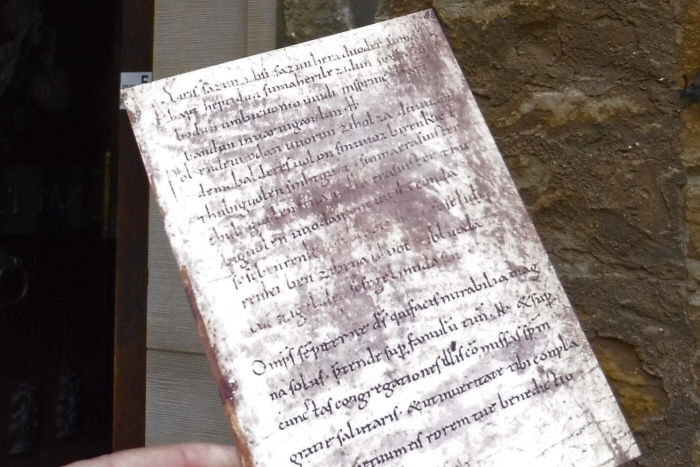 Eiris sazun idisi sazun hera duoder suma
hapt heptidun sumaherilezidun suma
bodun umbicuonio uuidi insprinc
bandun inuar uigandun. H.
Phol endeuuodan uuorun ziholza du uuart
demobalderes uolon sinuuoz birenkict
thubiguolen sinhtgunt. sunnaerasuister
thubiguolen friia uolla erasuister thu
biguolen uuodan sohe uuolaconda
sosebenrenki soselidi
renki ben zibena bluot zibluoda
lid zigeliden sosegelimida sin.
Omps sempiterne ds quifacis mirabilia mag
na solus. pretende sup famulu tuu. N. & sup
cunctas congregationes illis commissas spm
gratie salutaris. & utinueritate tibi compla
petuum eis rorem tue benedictio